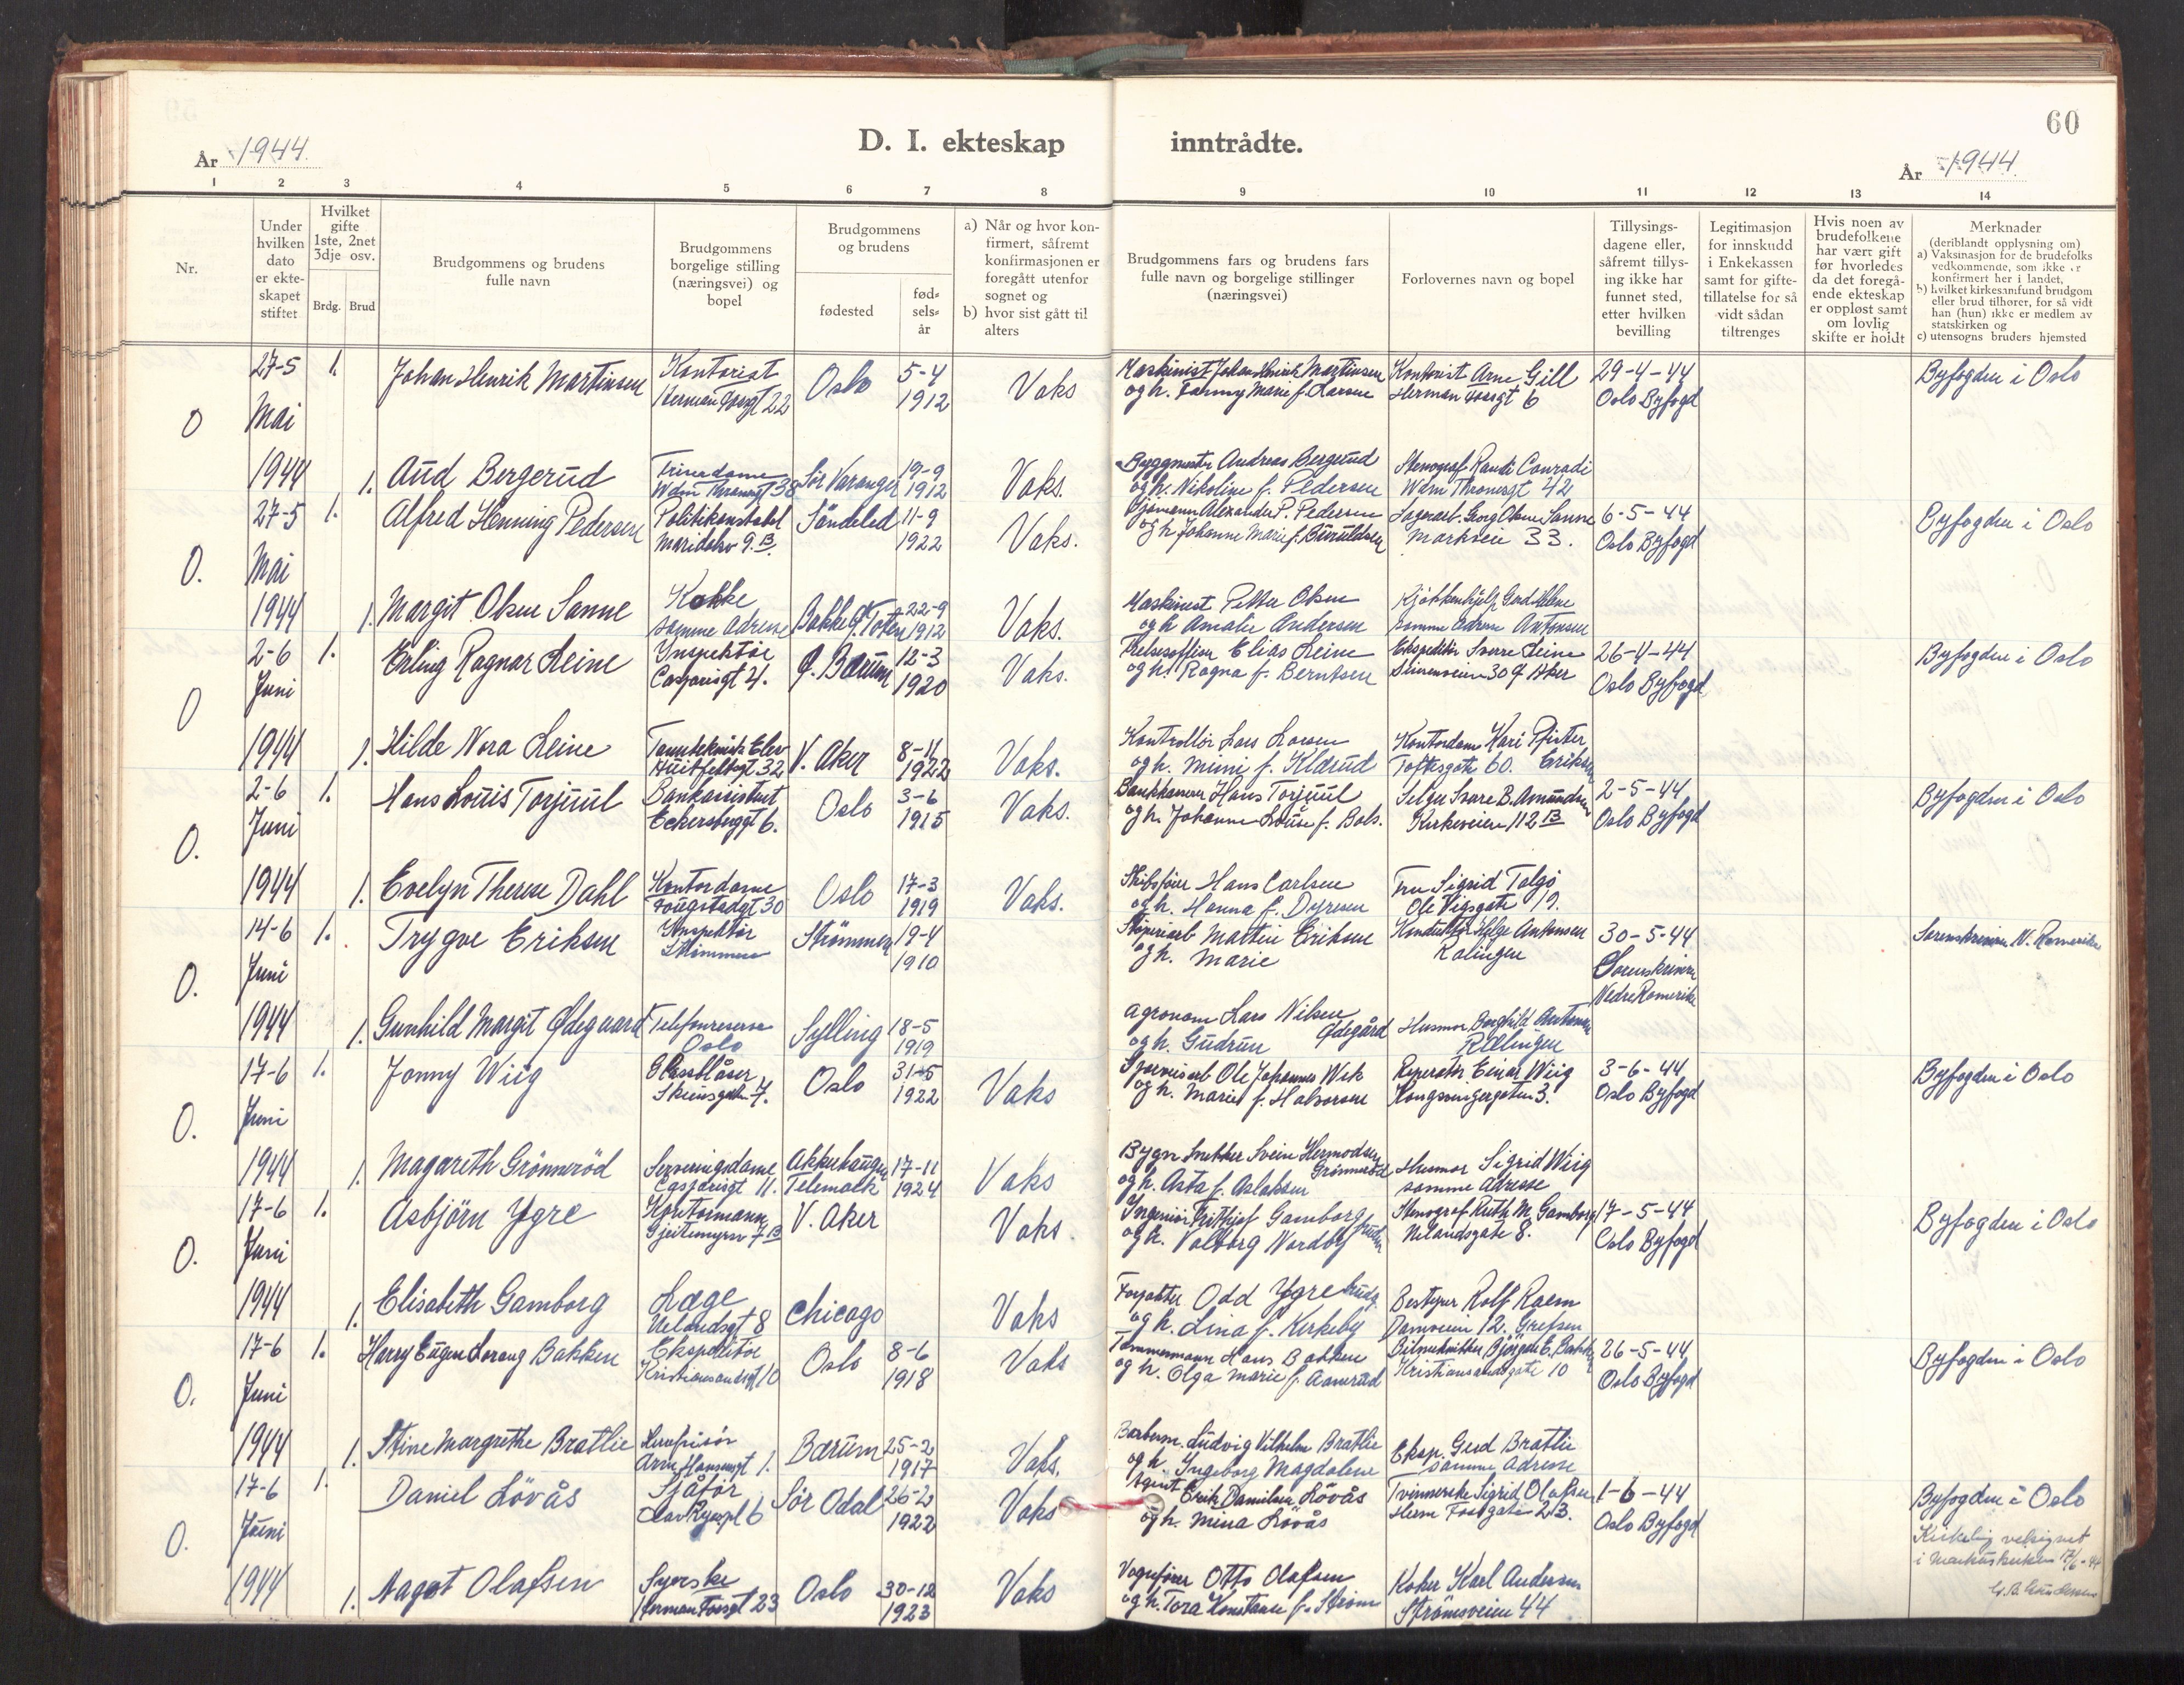 År 1944.
D. I. ekteskap
inntrådte.
60
År 1944.
1 2 3 4 5 6 7 8 9 10 11 12 13 14
Nr.
Under
hvilken
dato
er ekte-
skapet
stiftet
Hvilket
gifte
1ste, 2net
3dje osv.
Brdg. Brud
Brudgommens og brudens
fulle navn
Brudgommens
borgelige stilling
(næringsvei) og
bopel
Brudgommens
og brudens
fødested
fød-
sels-
år
a) Når og hvor kon-
firmert, såfremt
konfirmasjonen er
foregått utenfor
sognet og
b) hvor sist gått til
alters
Brudgommens fars og brudens fars
fulle navn og borgelige stillinger
(næringsvei)
Forlovernes navn og bopel
Tillysings-
dagene eller,
såfremt tillys-
ing ikke har
funnet sted,
etter hvilken
bevilling
Legitimasjon
for innskudd
i Enkekassen
samt for gifte-
tillatelse for så
vidt sådan
tiltrenges
Hvis noen av
brudefolkene
har vært gift
før hvorledes
da det foregå-
ende ekteskap
er oppløst samt
om lovlig
skifte er holdt
Merknader
(deriblandt opplysning om)
a) Vaksinasjon for de brudefolks
vedkommende, som ikke er
konfirmert her i landet,
b) hvilket kirkesamfund brudgom
eller brud tilhører, for så vidt
han (hun) ikke er medlem av
statskirken og
c) utensogns bruders hjemsted
27-5 1. Johan Henrik Martinsen Kontorist Oslo 5-4 Vaks Maskinist Johan Henrik Martinsen Kontorist Arne Gill 29-4-44 Byfogden i Oslo
Herman Fossgt 22 1912 og h. Fanny Marie f. Larsen Herman Fossgt 6 Oslo Byfogd
O Mai
1944 1. Aud Bergerud Trinedame Sør Varanger 19-9 Vaks. Byggmester Andreas Bergerud Stenograf Randi Conradi
Wdm Thranesgt 38 1912 og h. Nikoline f. Pedersen Wdm Thranesgt 42
27-5 1. Alfred Henning Pedersen Politikonstabel Söndeled 11-9 Vaks. Sjömann Alexander P. Pedersen Lagerarb. Georg Olsen Sanne 6-5-44 Byfogden i Oslo
Maridalsv 9.B. 1922 og h Johanne Marie f. Buruldsen Markvei 33. Oslo Byfogd
O. Mai
1944 1. Margit Olsen Sanne Kokke Bakke Ø. Toten 22-9 Vaks. Maskinist Petter Olsen Kjøkkenhjelp Gerd Helene
samme adresse 1912 og h Amalie Andersen samme adresse Antonsen
2-6 1. Erling Ragnar Leine Inspektør Ø. Bærum 12-3 Vaks. Frelsesoffiser Elias Leine Ekspeditør Sverre Leine 26-4-44 Byfogden i Oslo
Casparisgt 4. 1920 og h. Ragna f. Berntsen 30 Ø Aker Oslo Byfogd
O Juni
1944 1. Hilde Nora Leine Tannteknisk Elev V. Aker 8-11 Vaks. Kontrollør Lars Larsen Kontordame Kari Pfister
Huitfeltsgt 32 1922 og h. Mimi f. Kldrud Toftesgate 60. Eriksen
2-6 1. Hans Louis Torjuul Bankassistent Oslo 3-6 Vaks. Bankkasserer Hans Torjuul Selger Svare B. Amundsen 2-5-44 Byfogden i Oslo
Eckersberggt 6. 1915 og h. Johanne Louise f. Bols. Kirkeveien 112 B Oslo Byfogd
O. Juni
1944 1. Evelyn Therese Dahl Kontordame Oslo 17-3 Vaks. Skibsfører Hans Carlsen Fru Sigrid Talgø
Fougstadgt 30 1919 og h. Hanna f. Dyresen Ole Vigsgate 19.
14-6 1. Trygve Eriksen Inspektør Strömmen 19-4 Støperiarb Martin Eriksen Konduktör Helge Antonsen 30-5-44 Sorenskriveren N. Romerike
Strömmen 1910 og h. Marie Rælingen Sorenskriveren
O. Juni Nedre Romerike
1944 1. Gunhild Margit Ødegaard Telefonreserve Sylling 18-5 Agronom Lars Nilsen Husmor Borghild Antonsen
Oslo 1919 og h. Gudrun Ødegård Rælingen
17-6 1. Jonny Wiig Glassblåser Oslo 31-5 Vaks Sporveisarb Ole Johannes Wek Reperatør Einar Wiig 3-6-44 Byfogden i Oslo
Skiensgate 7. 1922 og h. Marie f. Halvorsen Kongsvingergaten 3. Oslo Byfogd
O. Juni
1944 1. Magareth Grönneröd Serveringsdame Akkerhaugen 17-11 Vaks Bygn Snekker Svein Hermodsen Husmor Sigrid Wiig
Casparisgt 11. Telemark 1924 og h. Asta f. Aslaksen Grönneröd samme adresse
17-6 1. Asbjörn Ygre Kontormann V. Aker Vaks. Ingeniør Fritjof Gamborg Stenograf Ruth M. Gamborg 17-5-44 Byfogden i Oslo
Gjeitemyrsv 7 B og h. Valborg Nordby Nilandsgate 8. Oslo Byfogd
O. Juni
1944 1. Elisabeth Gamborg Læge Chicago Vaks Forfatter Odd Ygre Bestyrer Rolf Raem
Uelandsgt 8 og h. Lina f. Kirkeby Damveien 12. Grefsen
17-6 1. Harry Eugen Lorang Bakken Ekspeditör Oslo 8-6 Vaks Tømmermann Hans Bakken Bilmekniker Björgulf E. Bakken 26-5-44 Byfogden i Oslo
Kristiansandsgt 10 1918 og h. Olga Marie f. Aamerud Kristiansandsgate 10 Oslo Byfogd
O. Juni
1944 1. Stine Margrethe Bratlie Bærum 25-2 Vaks. Barberm. Ludvig Vilhelm Bratlie Eksp. Gerd Bratlie
Arne Hansensgt 1. 1917 og h. Ingeborg Magdalene samme adresse
17-6 1. Daniel Lövås Sjåför Sör Odal 26-2 Vaks Agent Erik Danielsen Lövås Tvinnerske Sigrid Olafsen 1-6-44 Byfogden i Oslo
Olav Ryespl 6 1922 og h. Mina Lövås Herm Fossgate 23. Oslo Byfogd
O. Juni Kirkelig velsignet
i Markuskirken 17/6-44
1944 1. Nagot Olafsen Syerske Oslo 30-12 Vaks Vognfører Otto Olafsen Koker Karl Andersen
Herman Fossgt 23 1923 og h. Tora Konstanse f. Ström Strömsveien 44